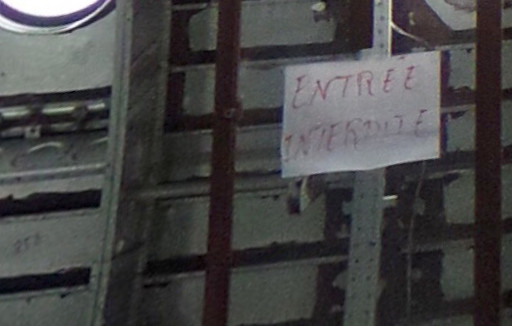 ENTRÉE
INTERDITE